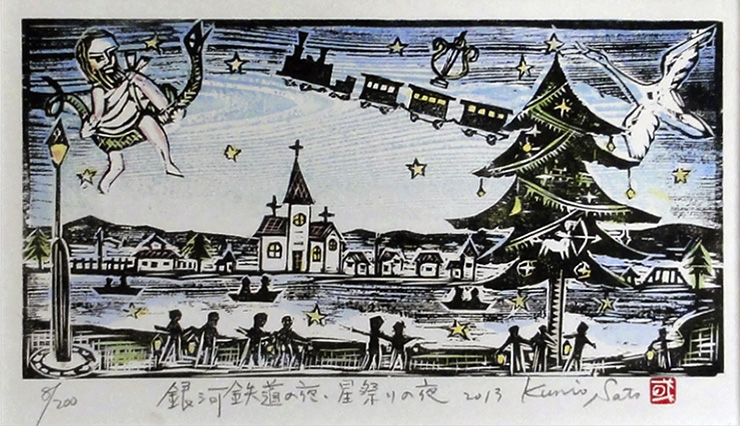 8/200 銀河鉄道の夜、星祭りの夜 2013 Kunio Sato 或